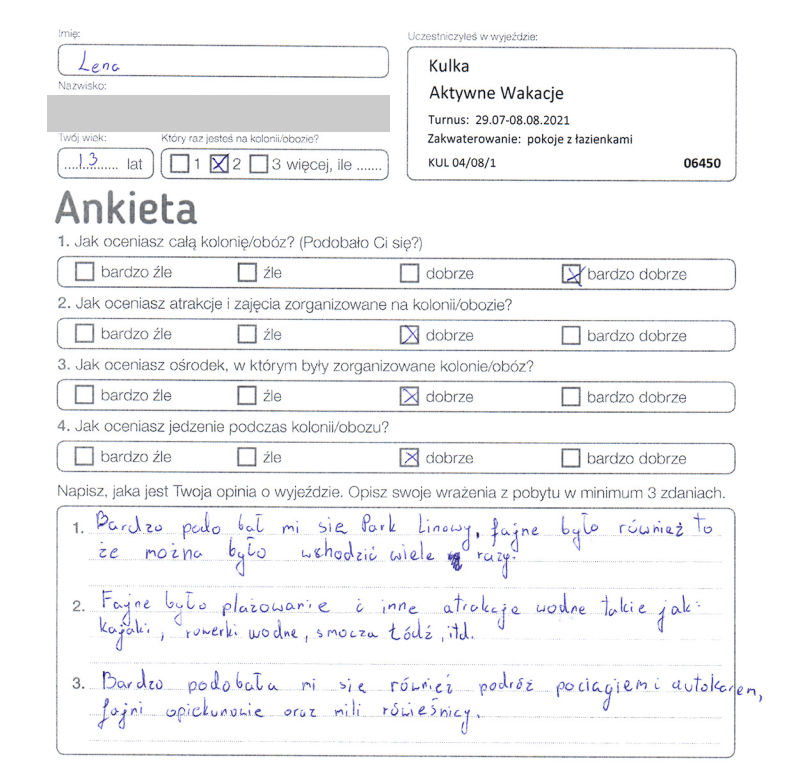 Imię:
Lena
Nazwisko:
Twój wiek:
13 lat
Który raz jesteś na kolonii/obozie?
1 2 3 więcej, ile .......
Uczestniczyłeś w wyjeździe:
Kulka
Aktywne Wakacje
Turnus: 29.07-08.08.2021
Zakwaterowanie: pokoje z łazienkami
KUL 04/08/1 06450
Ankieta
1. Jak oceniasz całą kolonię/obóz? (Podobało Ci się?)
bardzo źle źle dobrze bardzo dobrze
2. Jak oceniasz atrakcje i zajęcia zorganizowane na kolonii/obozie?
bardzo źle źle dobrze bardzo dobrze
3. Jak oceniasz ośrodek, w którym były zorganizowane kolonie/obóz?
bardzo źle źle dobrze bardzo dobrze
4. Jak oceniasz jedzenie podczas kolonii/obozu?
bardzo źle źle dobrze bardzo dobrze
Napisz, jaka jest Twoja opinia o wyjeździe. Opisz swoje wrażenia z pobytu w minimum 3 zdaniach.
1. Bardzo podo bał mi się Park Linowy, fajne było również to
że można było wchodzić wiele razy.
2. Fajne było plażowanie i inne atrakcje wodne takie jak:
kajaki, rowerki wodne, smocza łódź, itd.
3. Bardzo podobała mi się również podróż pociagiem i autokarem,
fajni opiekunowie oraz mili rówieśnicy.